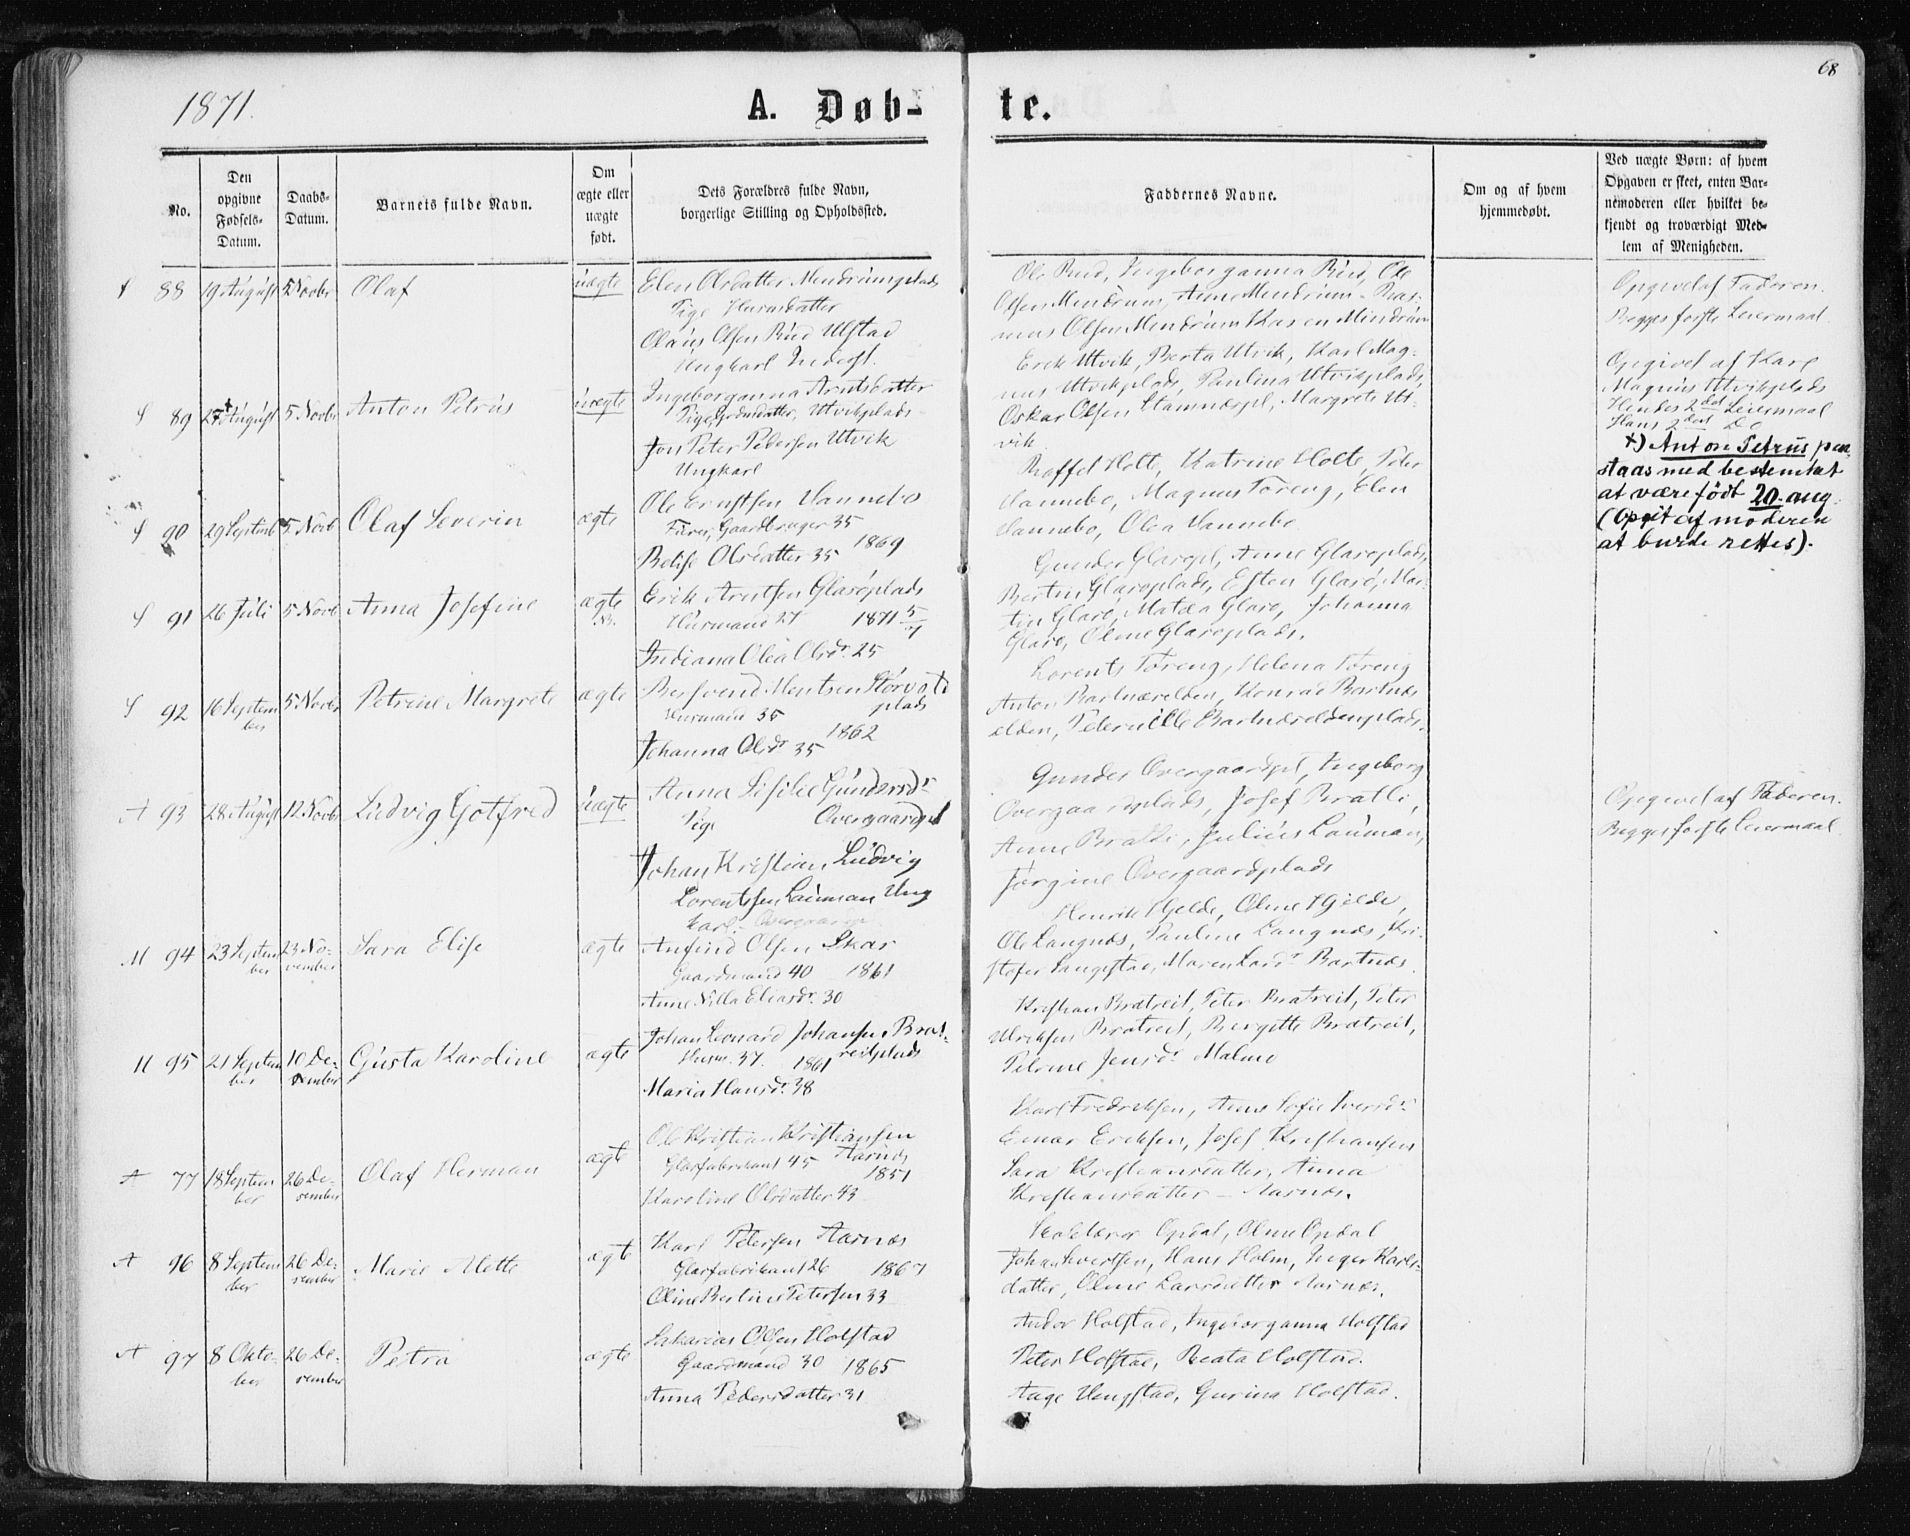 68
1871.
A. Døb-
te.
No.
Den
opgivne
Fødsels-
Datum.
Daabs-
Datum.
Barnets fulde Navn.
Om
ægte eller
uægte
født.
Dets Forældres fulde Navn,
borgerlige Stilling og Opholdssted.
Faddernes Navne.
Om og af hvem
hjemmedøbt.
Ved uægte Børn: af hvem
Opgaven er skeet, enten Bar-
nemoderen eller hvilket be-
kjendt og troværdigt Med-
lem af Menigheden.
S 88 19 August 5 Novbr Olaf uægte
Elen Olsdatter Mendrumplads
Pige
Olaus Olsen Rud Ulstad
Ungkarl
Ole Rud, Ingeborganna Rud, Ole
Olsen Mendrum, Anne Mendrum, Ras-
mus Olsen Mendrum Karen Mendrum
Opgivet af Faderen.
Begges første Leiermaal
S 89 27 August 5 Novbr Anton Petrus uægte
Ingeborganna Arntsdatter
Pige, Utvikplads
Jon Peter Pedersen Utvik
Ungkarl
Erik Utvik, Berta Utvik, Karl Mag-
nus Utvikplads, Paulina Utvikplads,
Oskar Olsen, Margrete Ut-
vik
Opgivet af Karl
Magnus Utvikplads
Hendes 2det Leiermaal
Hans 2det Do
+) Anton Petrus paa-
staas med bestemthet
at være født 20. aug.
(Opgit af moderen
at burde rettes).
S 90 29 Septemb 5 Novb Olaf Severin ægte
Ole Ernstsen Hannebo
Gaardbruger 35
1869
Olsdatter 35
Holte, Katrine Holte, Peter
Hannebo, Magnus Føreng, Elen
Hannebo, Olea Hannebo.
S 91 26 Juli 5 Novb Anna Josefine ægte
Erik Arntsen Glarøplads
Husmand 27 1871 5/7
Indiana Olea Olsdr 25
Gunder Glarøpl, Anne Glarøplads,
Bertin Glarøplads, Esten Glarø, Mar-
tin Glarø, Matea Glarø, Johanna
Glarø, Oline Glarøplads.
S 92 16 Septem-
ber 5 Novbr Petrine Margrete ægte
Bersvend Mentsen
plads
Husmand 35
1862
Johanna Olsdr 35
Lorents Føreng, Helena Føreng
Anton Bartnæselden, Konrad Bartnæs
elden, Peternille Bartnæseldenplads.
A 93 28 August 12 Novbr Ludvig Gotfred uægte
Anna Sisilie Gundersdr
Pige Overgaardpl
Johan Kristian Ludvig
Lorentssen Lauman Ung
karl.
Gunder Overgaardpl, Ingeborg
Overgaardplads, Josef Bratli,
Anne Bratli, Julius Lauman,
Jørgine Overgaardplads
Opgivet af Faderen.
Begges første Leiermaal
M 94 23 Septem
ber 23 No-
vember Sara Elise ægte
Anfind Olsen Skar
Gaardmand 40 1861
Anne Nilla Eliasdr. 30
Henrik Hjelde, Oline Hjelde,
Ole Langnæs, Pauline Langnæs, Kri-
stofer Langstad, Maren Larsdr Bartnæs
M 95 21 Septem
ber 10 De-
cember Gusta Karoline ægte
Johan Leonard Johansen Brat-
Husm. 37. 1861 reitplads
Maria Hansdr. 38
Kristian Bratreit, Peter Bratreit, Peter
Ulriksen Bratreit, Bergitte Bratreit,
Petrine Jensdr Malmo
A 77 18 Septem
ber 26 De-
cember Olaf Herman ægte
Ole Kristian Kristiansen
Glasfabrikant 45 Aarnæs
1851
Karoline Olsdatter 43
Karl Fredriksen, Ane Sofie Iversdr
Einar Eriksen, Josef Kristiansen
Sara Kristiansdatter, Anna
Kristiansdatter – Aarnæs.
A 96 8 Septem
ber 26 De-
cember Marie Mette ægte
Karl Petersen Aarnæs
Glasfabrikant 26 1867
Oline Bertine Petersen 33
Skolelærer Opdal, Oline Opdal
Johan Sivertsen, Hans Holm, Inger Karls-
datter, Oline Larsdatter Aarnæs.
A 97 8 Okto-
ber 26 De-
cember Petra ægte
Sakarias Olsen Holstad
Gaardmand 30 1865
Anna Pedersdatter 31
Andor Holstad, Ingeborganna Holstad
Peter Holstad, Beata Holstad.
Aage Ungstad, Gurina Holstad.